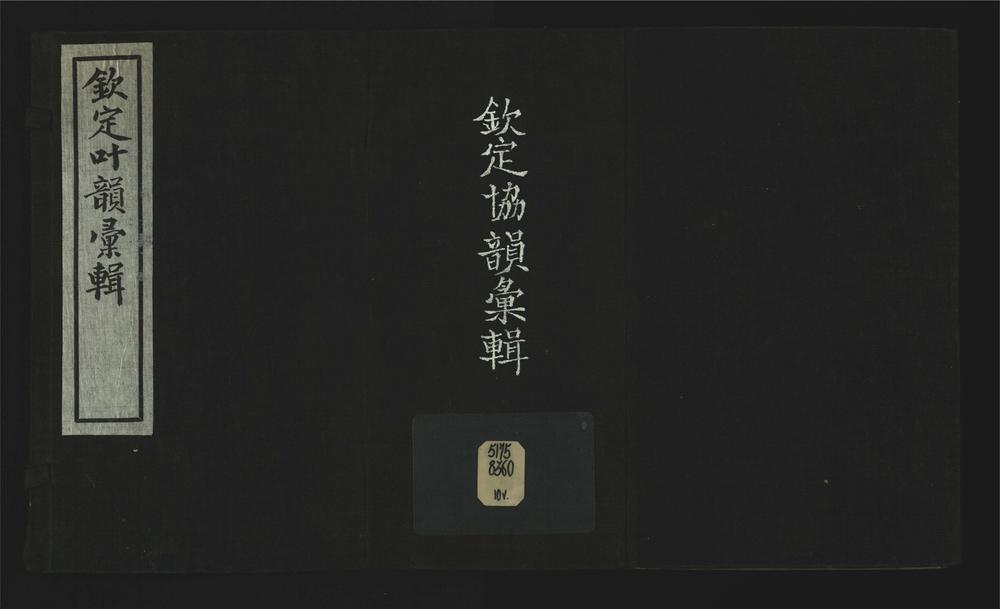 欽定叶韻彙輯
欽定協韻彙輯
5175
8360
10v.